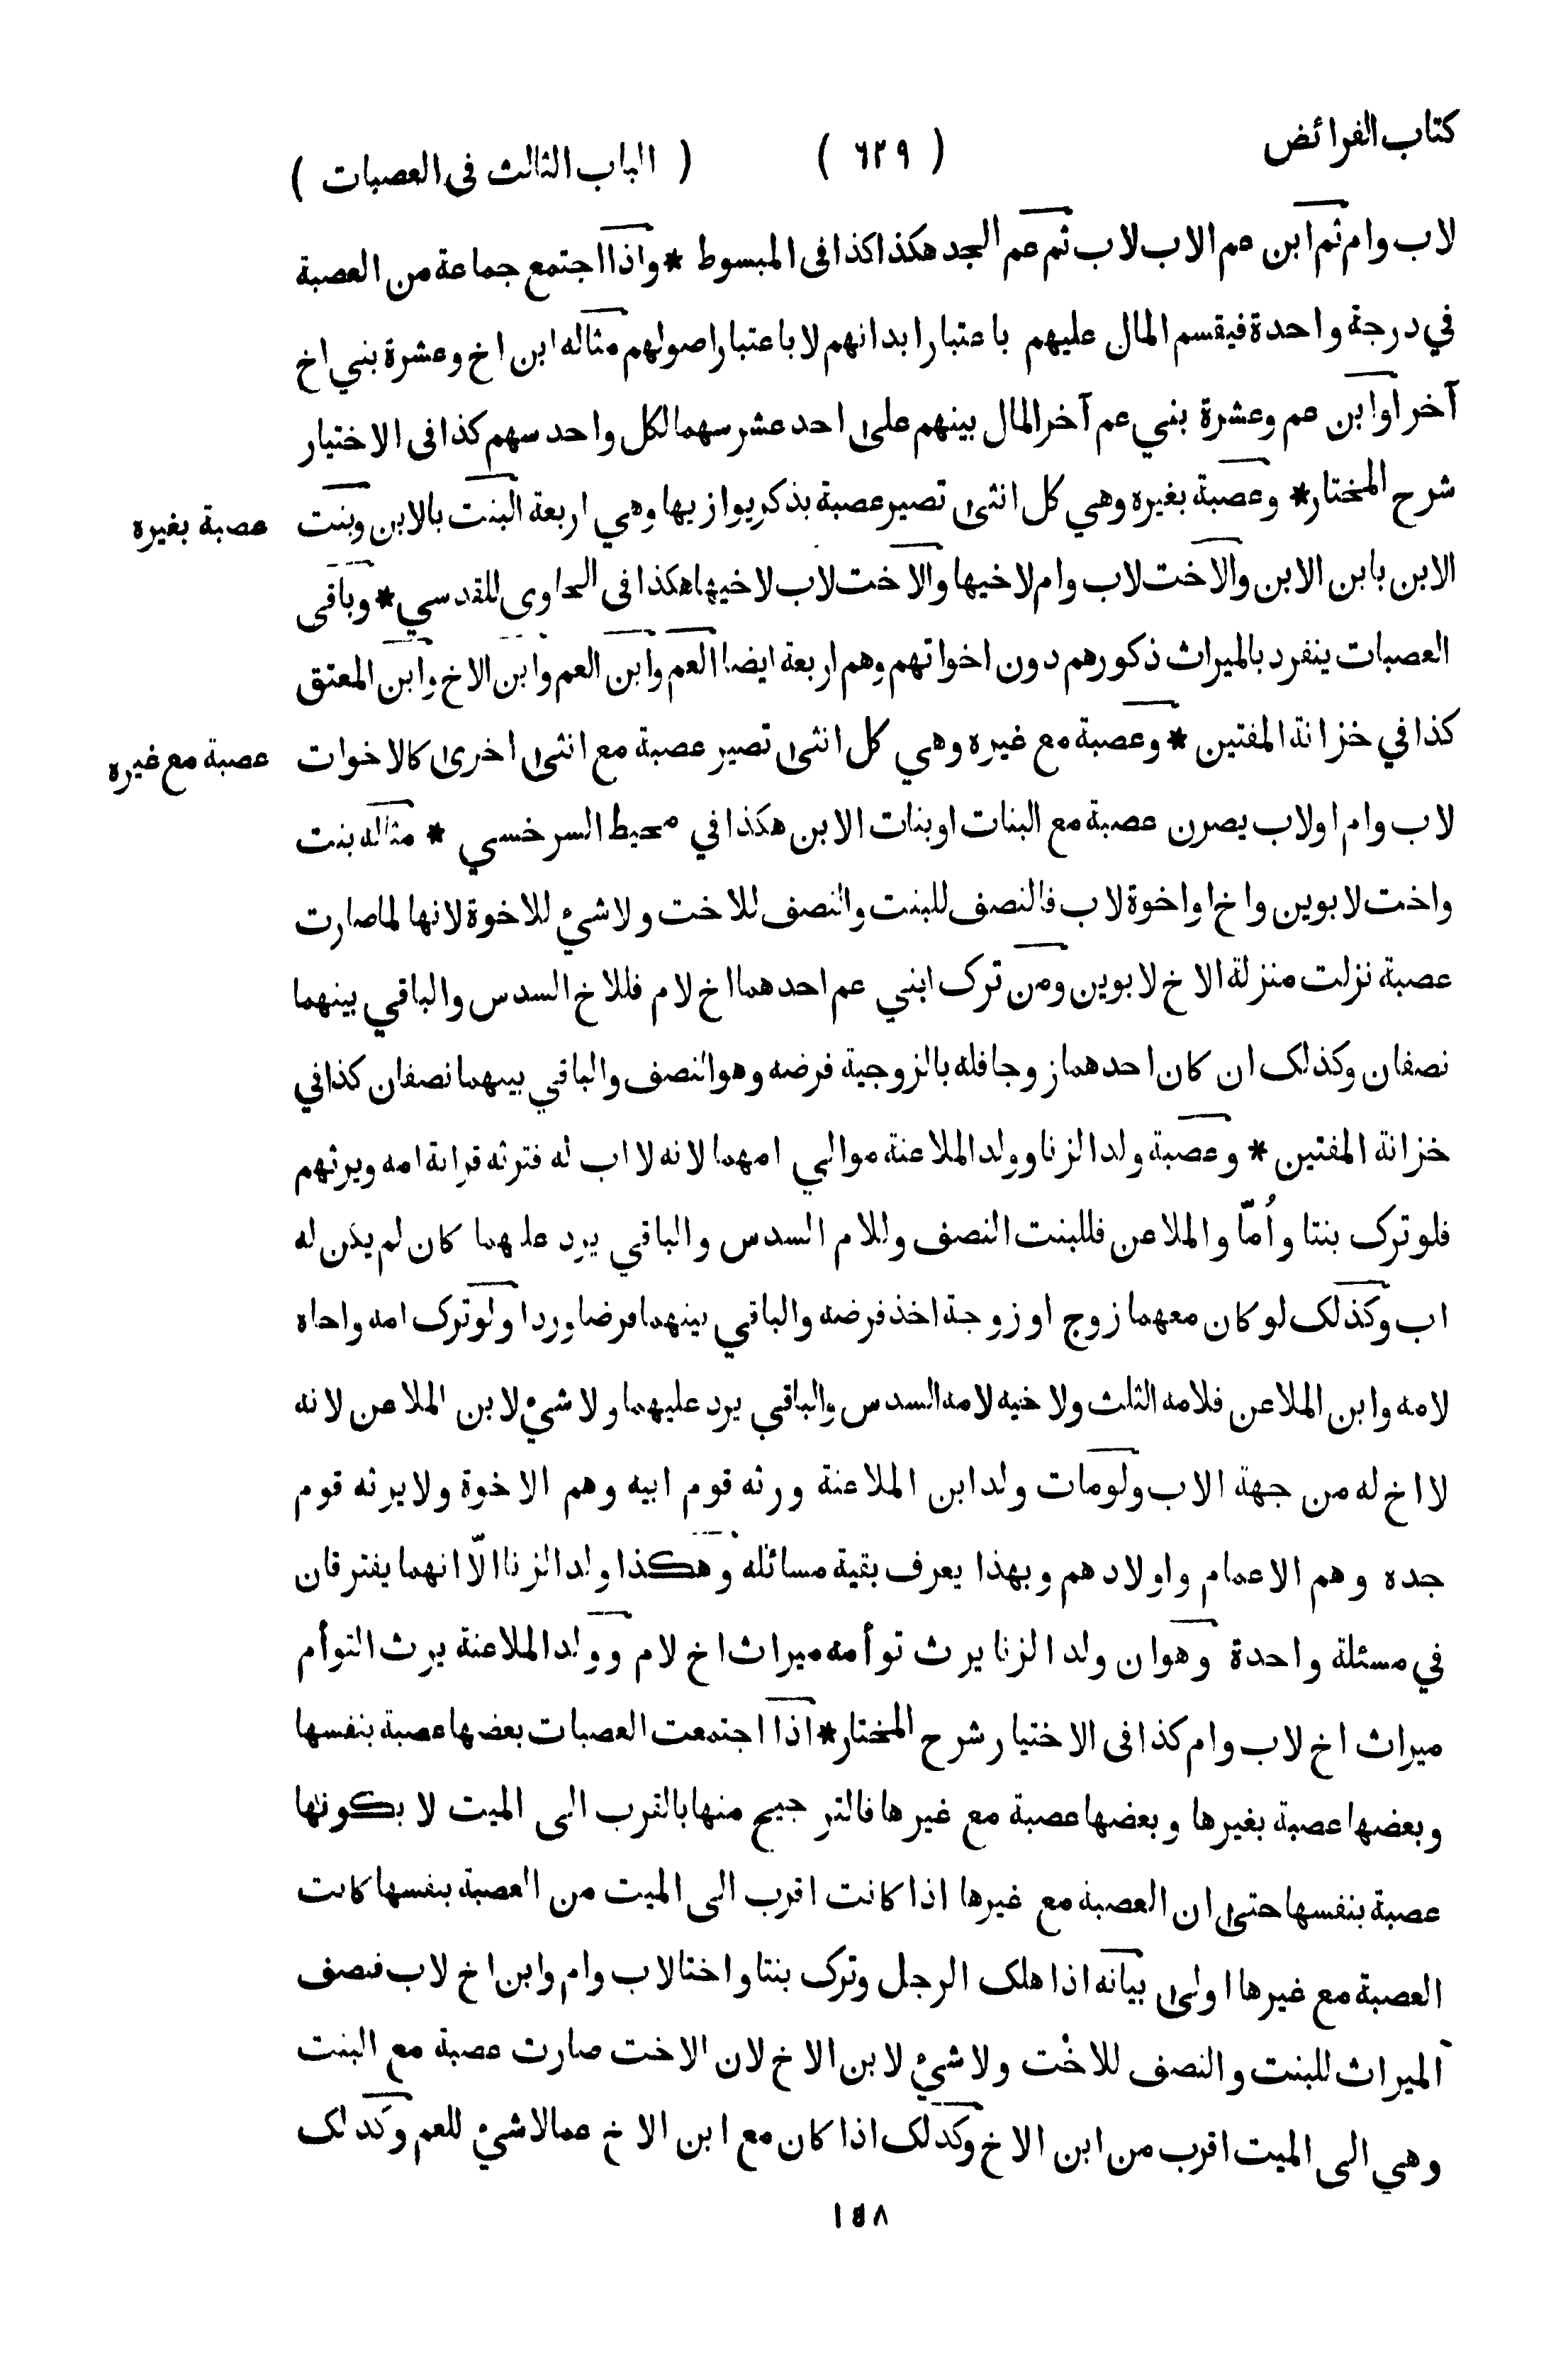 كتاب الفرائض ( ٦٢٩ ) ( الباب الثالث فى العصبات )
لاب وام ثم ابن عم الاب لاب ثم عم الجد هكذا كذا فى المبسوط * واذا اجتمع جماعة من العصبة
في درجة واحدة فيقسم المال عليهم باعتبار ابدانهم لا باعتبار اصولهم مثاله ابن اخ وعشرة بني اخ
آخر او ابن عم وعشرة بني عم آخر المال بينهم على احد عشر سهما لكل واحد سهم كذا فى الاختيار
شرح المختار * وعصبة بغيره وهي كل انثى تصير عصبة بذكر يوازيها وهي اربعة البنت بالابن وبنت
عصبة بغيره
الابن بابن الابن والاخت لاب وام لاخيها والاخت لاب لاخيها هكذا فى الحاوى للقدسي * وباقى
العصبات ينفرد بالميراث ذكورهم دون اخواتهم وهم اربعة ايضا العم وابن العم وابن الاخ وابن المعتق
كذا في خزانة المفتين * وعصبة مع غيره وهي كل انثى تصير عصبة مع انثى اخرى كالاخوات
عصبة مع غيره
لاب وام او لاب يصرن عصبة مع البنات او بنات الابن هكذا في محيط السرخسي * مثاله بنت
واخت لابوين واخ او اخوة لاب فالنصف للبنت والنصف للاخت ولا شيء للاخوة لانها لما صارت
عصبة نزلت منزلة الاخ لابوين ومن ترك ابني عم احدهما اخ لام فللاخ السدس والباقي بينهما
نصفان وكذلك ان كان احدهما زوجا فله بالزوجية فرضه وهو النصف والباقي بينهما نصفان كذا في
خزانة المفتين * وعصبة ولد الزنا وولد الملاعنة موالي امهما لانه لا اب له فترثه قرابة امه ويرثهم
فلو ترك بنتا واُمّا والملاعن فللبنت النصف وللام السدس والباقي يرد عليهما كان لم يكن له
اب وكذلك لو كان معهما زوج او زوجة اخذ فرضه والباقي بينهما فرضا وردا ولو ترك امه واخاه
لامه وابن الملاعن فلامه الثلث ولاخيه لامه السدس والباقي يرد عليهما ولا شيء لابن الملاعن لانه
لا اخ له من جهة الاب ولو مات ولد ابن الملاعنة ورثه قوم ابيه وهم الاخوة ولا يرثه قوم
جده وهم الاعمام واولادهم وبهذا يعرف بقية مسائله وهكذا ولد الزنا الّا انهما يفترقان
في مسئلة واحدة وهو ان ولد الزنا يرث توأمه ميراث اخ لام وولد الملاعنة يرث التوأم
ميراث اخ لاب وام كذا فى الاختيار شرح المختار * اذا اجتمعت العصبات بعضها عصبة بنفسها
وبعضها عصبة بغيرها وبعضها عصبة مع غيرها فالترجيح منها بالقرب الى الميت لا بكونها
عصبة بنفسها حتى ان العصبة مع غيرها اذا كانت اقرب الى الميت من العصبة بنفسها كانت
العصبة مع غيرها اولى بيانه اذا هلك الرجل وترك بنتا واختا لاب وام وابن اخ لاب فنصف
الميراث للبنت والنصف للاخت ولا شيء لابن الاخ لان الاخت صارت عصبة مع البنت
وهي الى الميت اقرب من ابن الاخ وكذلك اذا كان مع ابن الاخ عما لا شيء للعم وكذلك